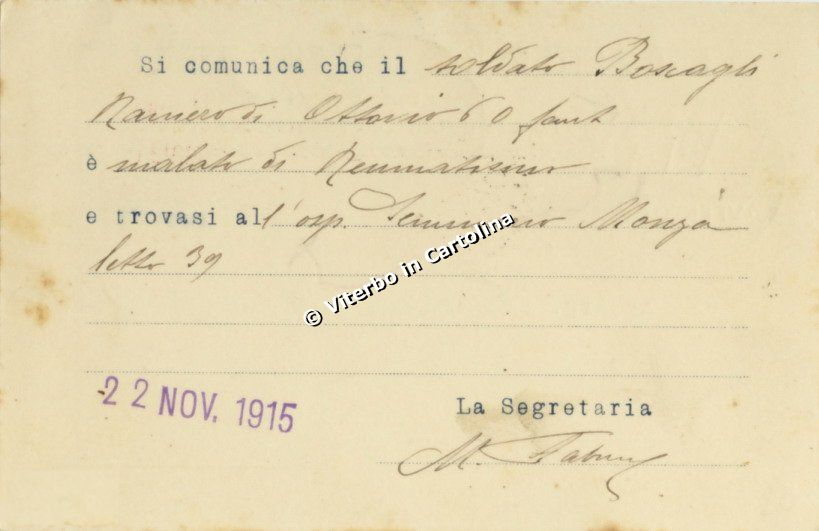 Si comunica che il soldato Boscagli
Raniero di Ottavio 60 fant
è malato di Reumatismo
e trovasi all'osp. Seminario Monza
letto 39
© Viterbo in Cartolina
22 NOV. 1915
La Segretaria
M.